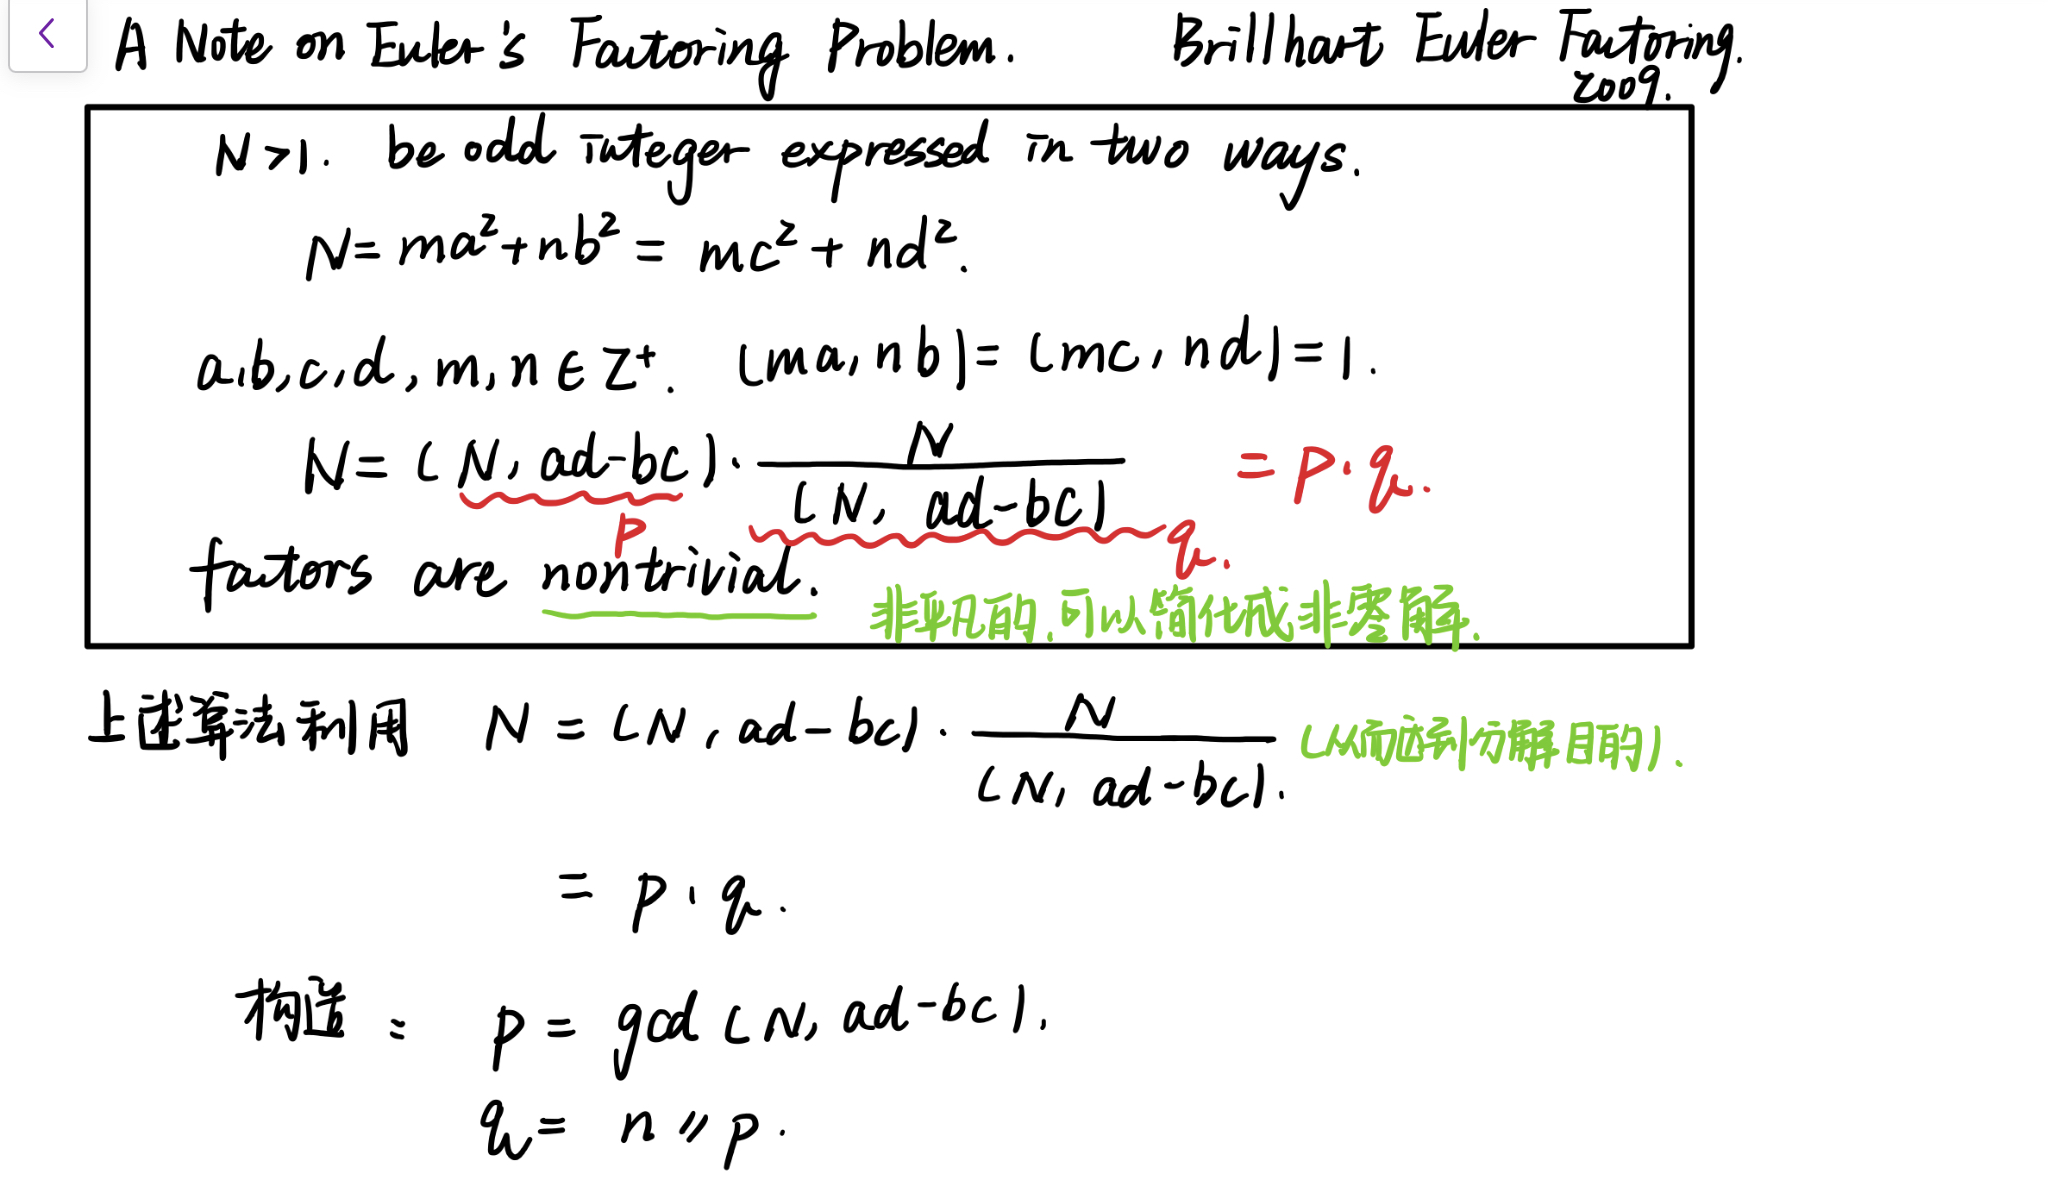 A Note on Euler's Factoring Problem. Brillhart Euler Factoring.
2009.
N>1. be odd integer expressed in two ways.
N= ma²+nb² = mc²+ nd².
a,b,c,d,m,n ∈ Z⁺. (ma, nb)= (mc, nd)=1.
N= (N, ad-bc) · N / (N, ad-bc) = p·q.
p q.
factors are nontrivial. 非平凡的,可以简化成非零解.
上述算法利用 N = (N, ad-bc) · N / (N, ad-bc). (从而达到分解目的).
= p · q.
构造: p = gcd (N, ad-bc).
q = n // p.